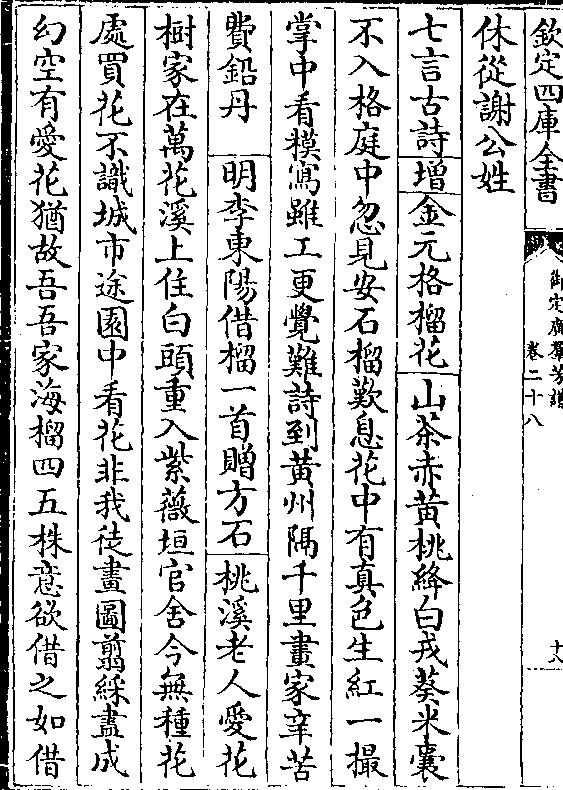 欽定四庫全書
御定廣羣芳譜
卷二十八
十八
休從謝公姓
七言古詩增金元格榴花山茶赤黃桃絳白戎葵米囊
不入格庭中忽見安石榴歎息花中有真色生紅一撮
掌中看糢寫雖工更覺難詩到黃州隔千里畫家辛苦
費鉛丹 明李東陽借榴一首贈方石桃溪老人愛花
樹家在萬花溪上住白頭重入紫薇垣官舍今無種花
處買花不識城市途園中看花非我徒畫圖翦綵盡成
幻空有愛花猶故吾吾家海榴四五株意欲借之如借